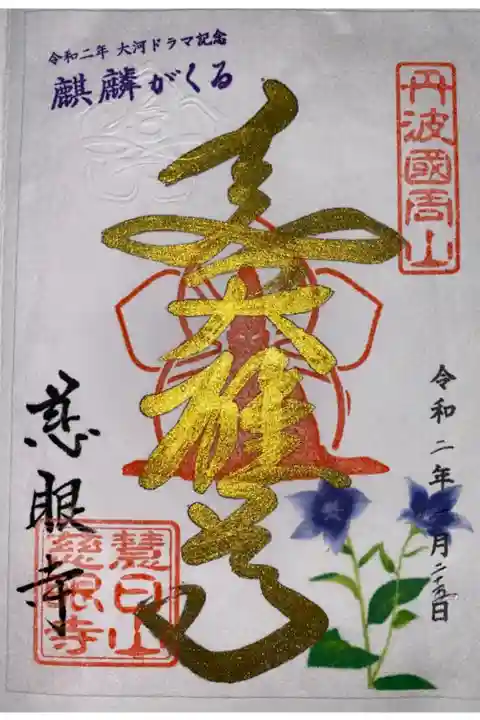 令和二年 大河ドラマ記念
麒麟がくる
丹波國周山
大雄尊
令和二年一月二十五日
慈眼寺
慧日山
慈眼寺